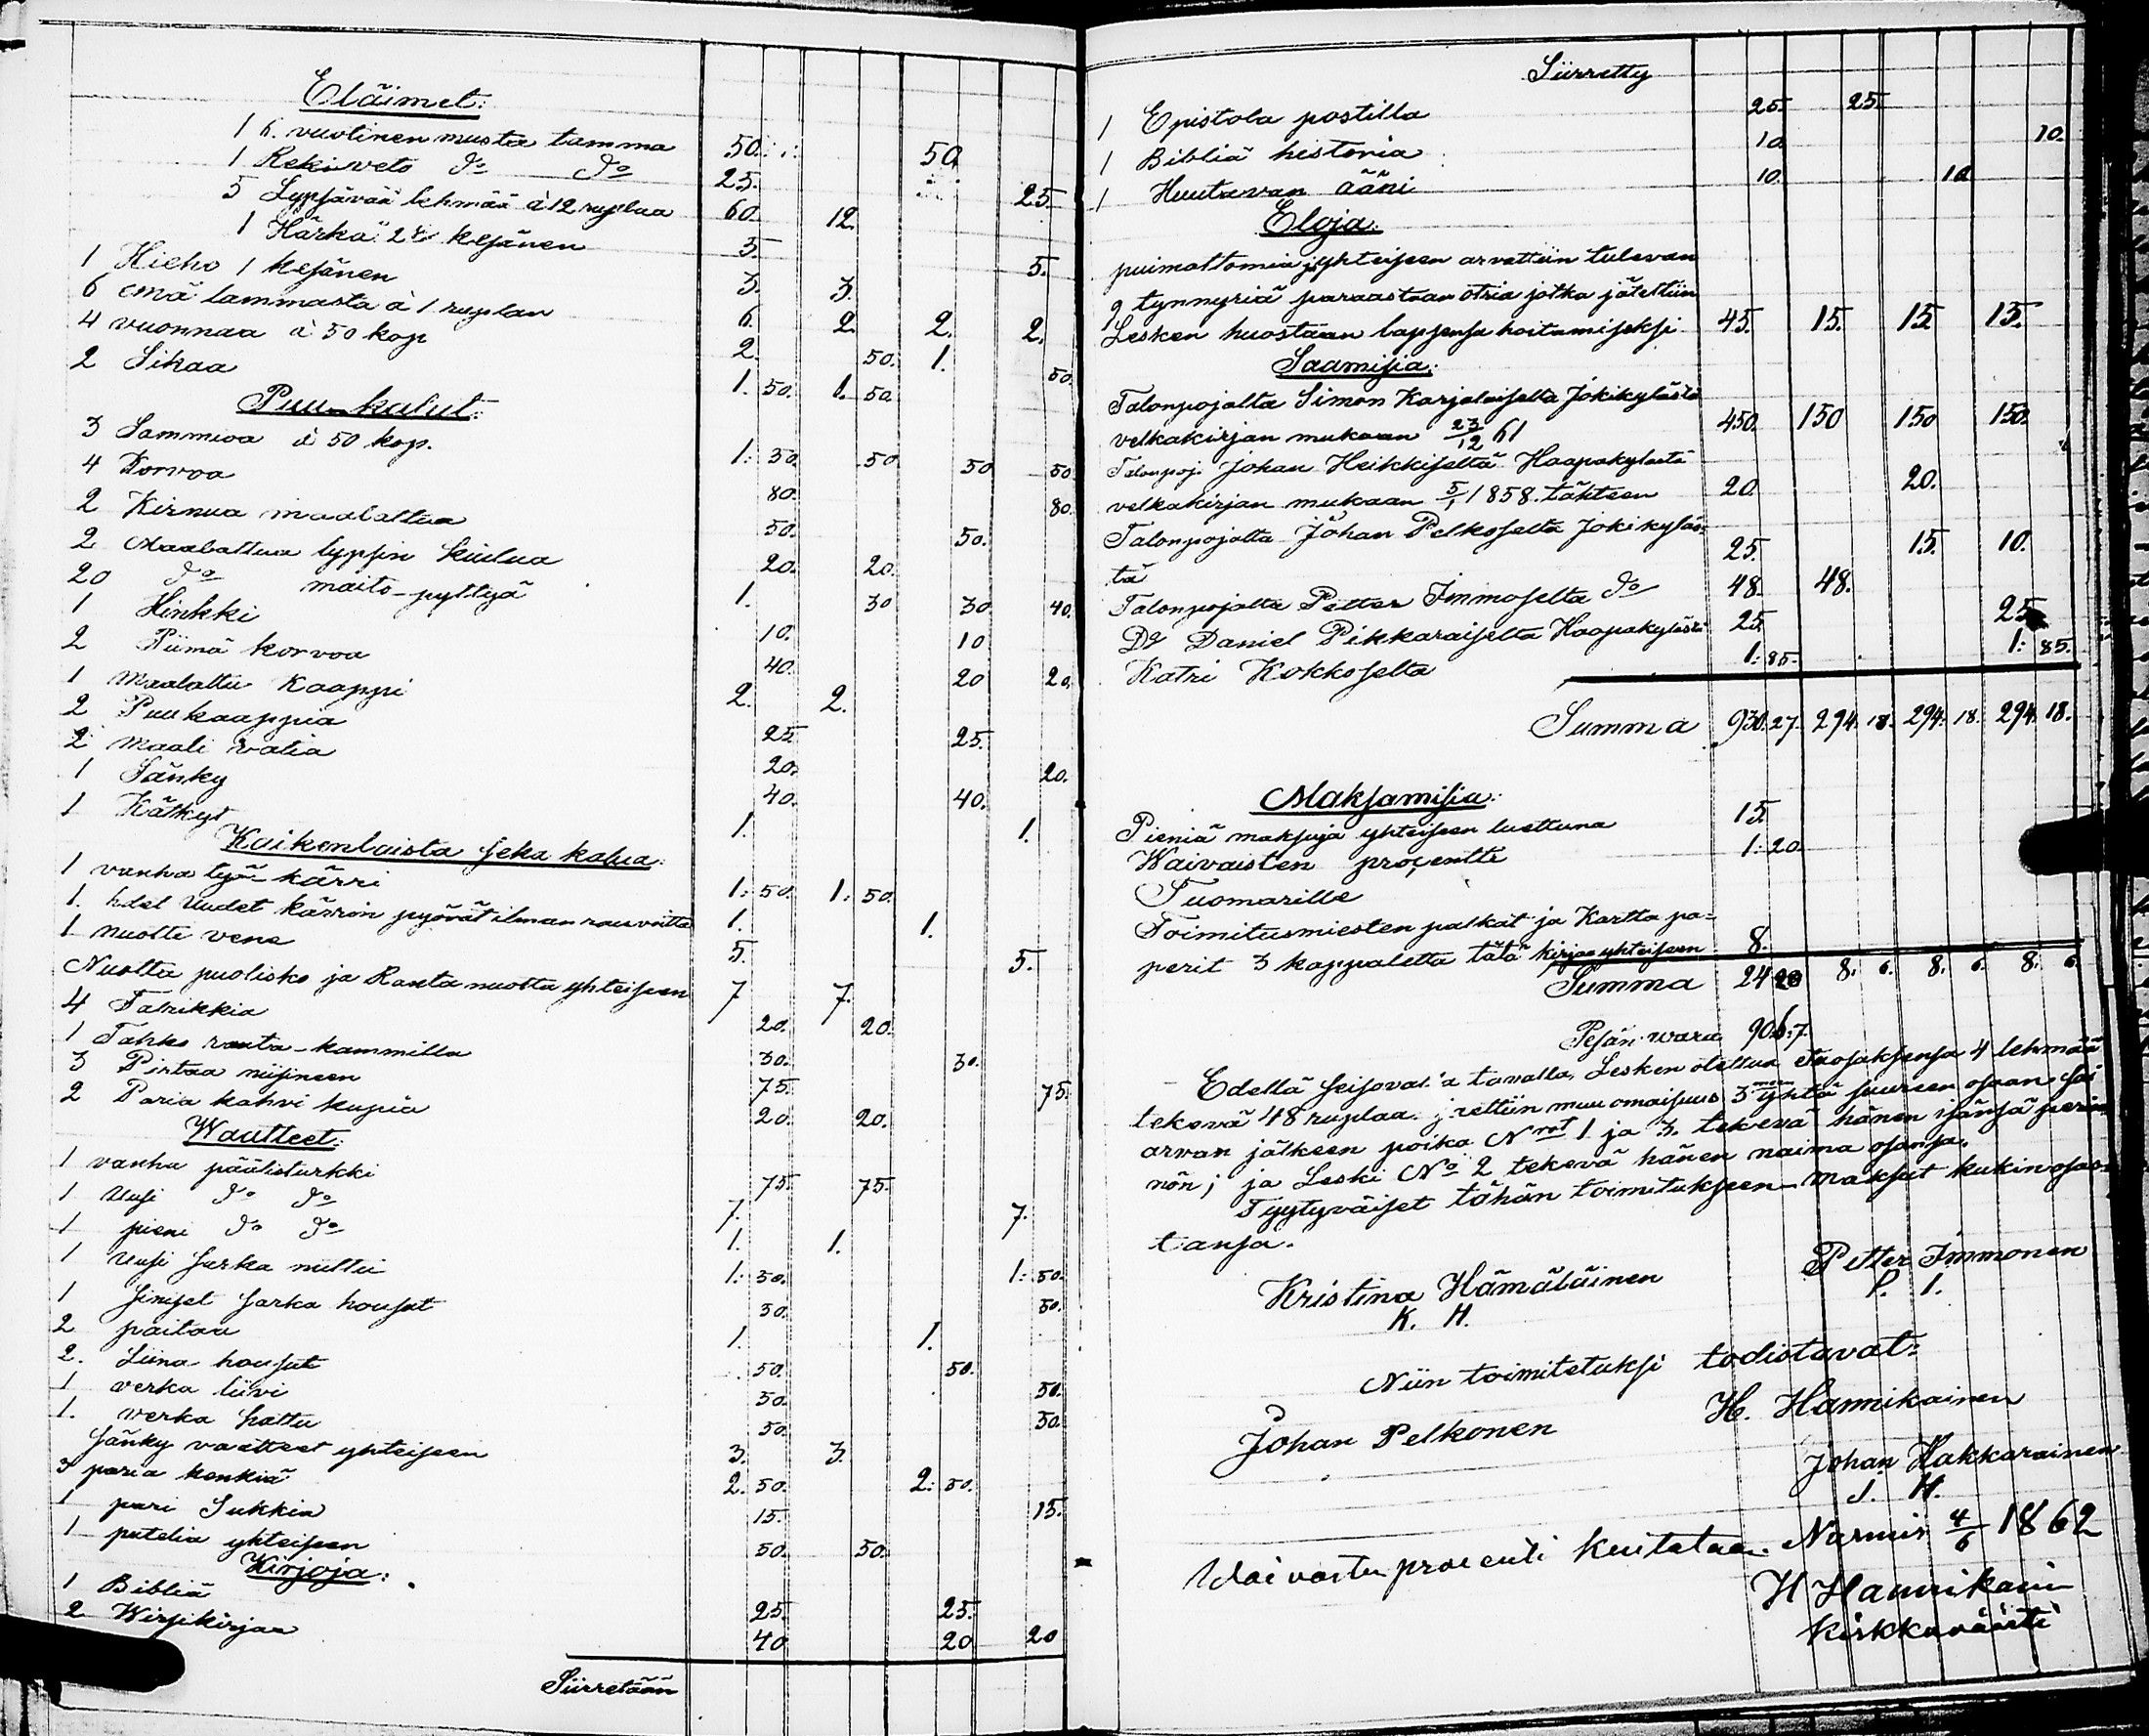 Eläimet:
1 6. vuotinen musta tamma 50. 50.
1 Reki veto do do 25. 25.
5 Lypsävää lehmää à 12 ruplaa 60. 12.
1 Härkä 2 kesänen 5. 5.
1 Hieho 1 kesänen 3. 3.
6 emä lammasta à 1 ruplan 6. 2. 2. 2.
4 vuonnaa à 50 kop 2. 50. 1. 50.
2 Sikaa 1. 50. 1. 50.
Puu-kalut:
3 Sammioa à 50 kop. 1: 50. 50 50 50
4 Korvoa 80. 80.
2 Kirnua maalattua 50. 50.
2 Maalattua lypsin kiulua 20. 20.
20 do maito-pyttyä 1. 30 30. 40.
1 Hinkki 10. 10
2 Piimä korvoa 40. 20 20.
1 Maalattu Kaappi 2. 2.
2 Puukaappia 25. 25.
2 Maali vatia 20. 20.
1 Sänky 40. 40.
1 Kätkyt 1. 1.
Kaikenlaista seka kalua:
1 vanha työ-kärri 1: 50. 1: 50.
1. hdel Uudet kärrin pyörät ilman rauvoitta 1. 1.
1 nuotte vene 5. 5.
Nuotta puolisko ja Ranta nuotta yhteiseen 7 7.
4 Talrikkia 20. 20.
1 Tahko rauta-kammilla 30. 30.
3 Pirtaa niisineen 75. 75.
2 Paria kahvi kupia 20. 20.
Waatteet:
1 vanha päälisturkki 75. 75.
1 Uusi do do 7. 7.
1 pieni do do 1. 1.
1 Uusi sarka nuttu 1: 50. 1: 50.
1 siniset sarka housut 50. 50.
2 paitaa 1. 1.
2. Liina housut 50. 50.
1 verka liivi 50. 50.
1. verka hattu 50. 50.
sänky vaatteet yhteiseen 3. 3.
3 paria kenkiä 2. 50. 2: 50.
1 pari Sukkia 15. 15.
1 putelia yhteiseen 50. 50.
Kirjoja:
1 Bibliä 25. 25.
2 Wirsikirjaa 40 20 20
Siirretään
Siirretty
1 Epistola postilla 25. 25.
1 Bibliä historia 10. 10.
1 Huutavan ääni 10. 10
Eloja:
puimattomia yhteiseen arvattiin tulevan
9 tynnyriä paraastaan otria jotka jätettiin
Lesken huostaan lapsensa hoitamiseksi 45. 15. 15. 15.
Saamisia:
Talonpojalta Simon Karjalaiselta Jokikylästä
velkakirjan mukaan 23/12 61 450. 150 150 150.
Talonpoj. Johan Heikkiseltä Haapakylästä
velkakirjan mukaan 5/1 1858. tähteen 20. 20.
Talonpojalta Johan Pelkoselta Jokikyläs-
tä 25. 15. 10.
Talonpojalta Petter Immoselta do 48. 48.
Do Daniel Pikkaraiselta Haapakylästä 25. 25
Katri Kokkoselta 1: 85. 1: 85.
Summa 930. 27. 294. 18. 294. 18. 294. 18.
Maksamisia:
Pieniä maksuja yhteiseen luettuna 15.
Waivaisten procentte 1: 20.
Tuomarille
Toimitusmiesten palkat ja Kartta pa-
perit 3 kappaletta tätä kirjaa yhteiseen 8.
Summa 24 20 8. 6. 8. 6. 8. 6.
Pesän vara 906: 7.
Edellä seisovalla tavalla, Lesken otettua etuosaksensa 4 lehmää
tekevä 48 ruplaa. jaettiin muu omaisuus 3 yhtä suureen osaan sai
arvan jälkeen poika Nrot 1 ja 3. tekevä hänen isänsä perin
nön; ja Leski No 2 tekevä hänen naima osansa.
Tyytyväiset tähän toimitukseen maksat kukin osas-
tansa.
Kristina Hämäläinen Petter Immonen
K. H. P. I.
Niin toimitetuksi todistavat:
Johan Pelkonen H. Hannikainen
Johan Hakkarainen
J. H.
Waivastu procenti kuitataan. Nurmis 4/6 1862
H Hannikain
kirkkoväärti